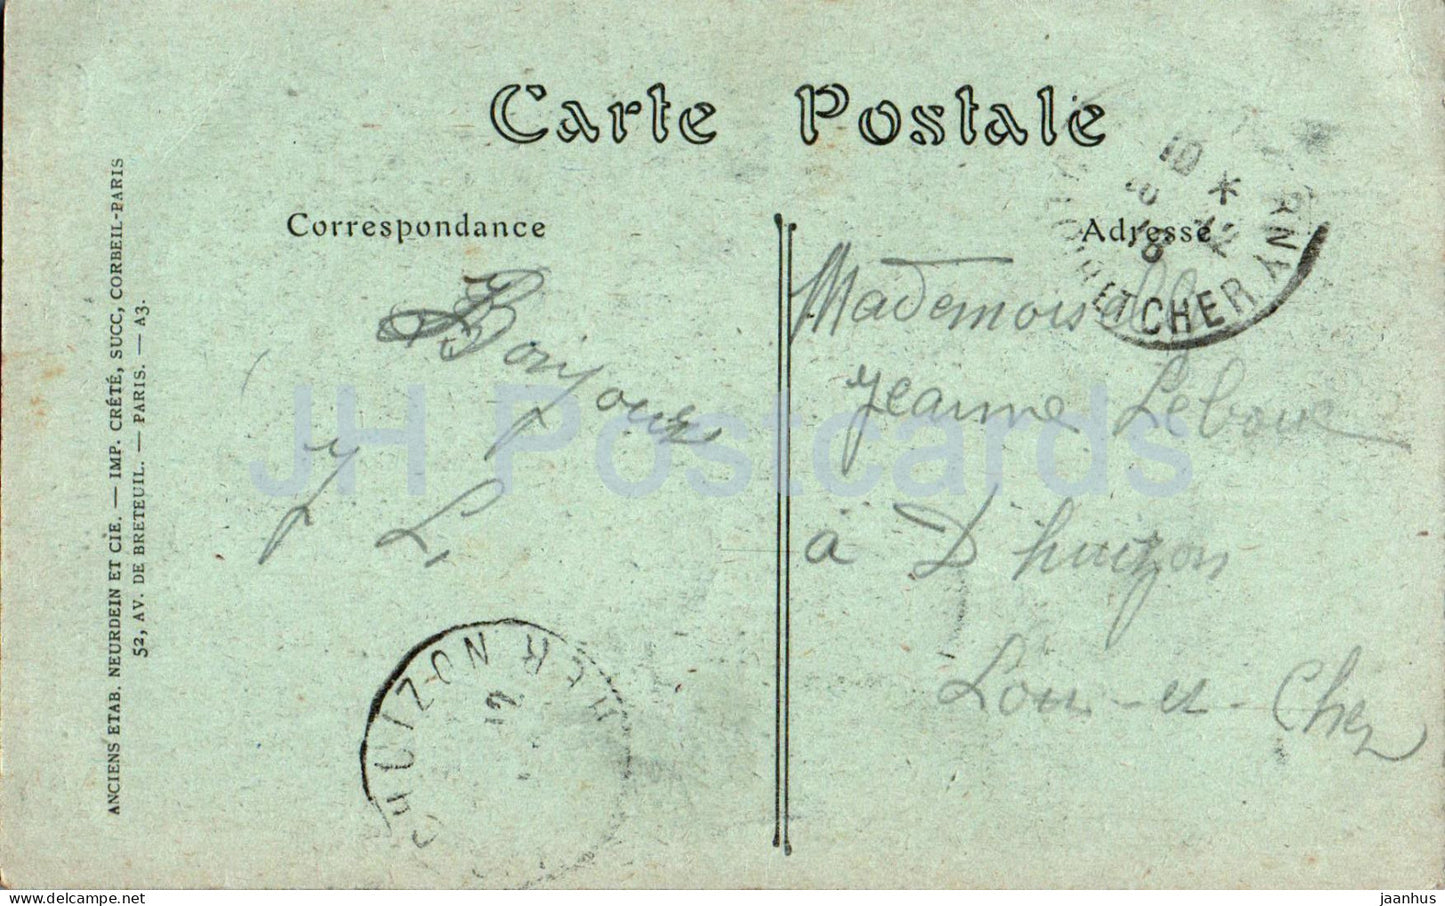 Carte Postale
Correspondance
Adresse
Bonjour
J L
Mademoiselle
Jeanne Lebour
à Dhuizon
Loir-et-Cher
RNY
LOIR ET CHER
10 *
DHUIZON
CHER
ANCIENS ETAB. NEURDEIN ET CIE. — IMP. CRÉTÉ, SUCC, CORBEIL-PARIS
52, AV. DE BRETEUIL. — PARIS. — A3.
JH Postcards
jaanhus